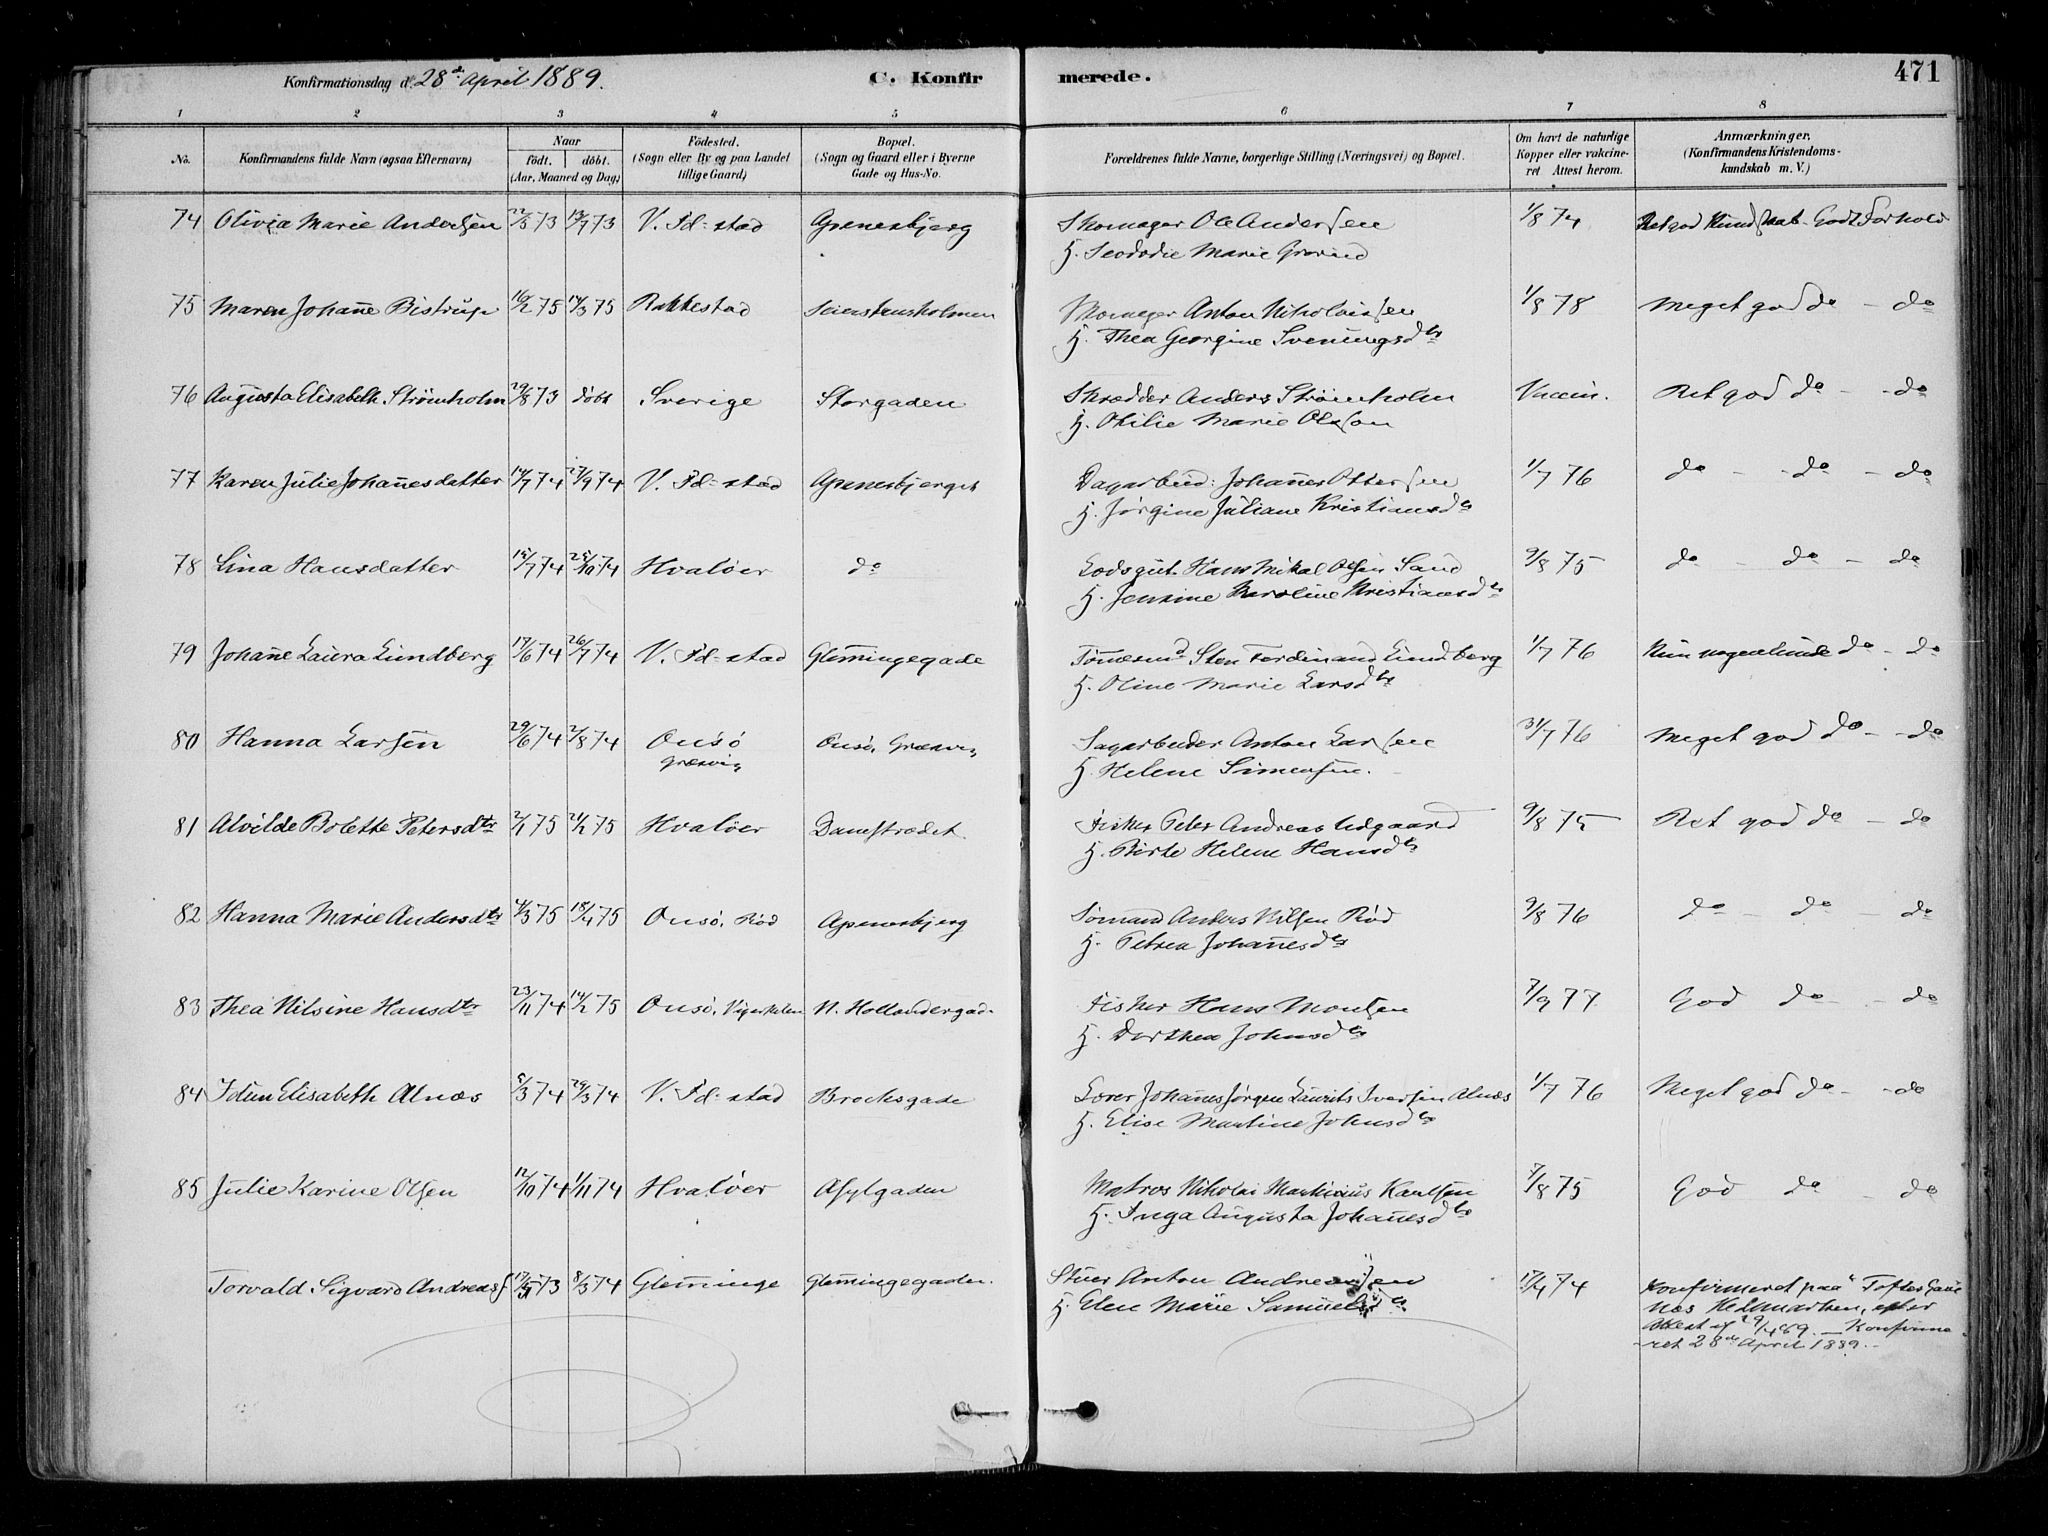 Konfirmationsdag d. 28de April 1889.
C. Konfir
merede.
471
1 2 3 4 5 6 7 8
No.
Konfirmandens fulde Navn (ogsaa Efternavn)
Naar
födt. döbt.
(Aar, Maaned og Dag)
Födested.
(Sogn eller By og paa Landet
tillige Gaard)
Bopæl.
(Sogn og Gaard eller i Byerne
Gade og Hus-No.
Forældrenes fulde Navne, borgerlige Stilling (Næringsvei) og Bopæl.
Om havt de naturlige
Kopper eller vakcine-
ret Attest herom.
Anmærkninger.
(Konfirmandens Kristendoms-
kundskab m. V.)
74 Olivia Marie Andersen 22/5 73 13/7 73 V. Fd-stad Apenesbjerg Skomager Ole Andersen 1/8 74 Ret god Kundskab - Godt Forhold
H. Marie
75 Maren Johañe Bistrup 16/2 75 14/3 75 Rakkestad Skomager Anton Nikolaisen 1/8 78 Meget god do - do
H. Thea Georgine Sveningsdtr
76 Augusta Elisabeth Strömholm 29/8 73 döbt Sverige Storgaden Skrædder Anders Strömholm Vaccin. Ret god do - do
H. Otilie Marie Olsson
77 Karen Julie Johañesdatter 14/7 74 27/9 74 V. Fd-stad Apenesbjerget Dagarbeid: Johañes Ottersen 1/7 76 do - do - do
H. Jørgine Juliane Kristiansdtr
78 Lina Hansdatter 15/7 74 25/10 74 Hvalöer do Lodsgut. Hans Mikal Olsen Sand 9/8 75 do - do - do
H. Jensine Karoline Kristiansdtr
79 Johañe Laura Lundberg 17/6 74 26/7 74 V. Fd-stad Glem̃ingegade Töm̃esmd Sten Ferdinand Lundberg 1/7 76 Kun nogenlunde do - do
H. Oline Marie Larsdtr
80 Hanna Larsen 29/6 74 2/8 74 Onsö Onsö, Græsvig Sagarbeider Anton Larsen 31/7 76 Meget god do - do
Græsvig
H. Helene Simensen.
81 Alvilde Bolette Petersdtr 2/1 75 21/2 75 Hvalöer Damstrædet Fisker Peter Andreas Udgaard 9/8 75 Ret god do - do
H. Birte Helene Hansdtr
82 Hanna Marie Andersdtr 4/3 75 18/4 75 Onsö, Röd Apenesbjerg Sömand Anders Nilsen Röd 9/8 76 do - do - do
H. Petrea Johañesdtr
83 Thea Nilsine Hansdtr 23/11 74 14/2 75 Onsö, Vigerkilen N. Hollendergad. Fisker Hans Monsen 7/9 77 God do - do
H. Dorthea Johnsdtr
84 Idun Elisabeth Alnæs 5/3 74 29/3 74 V. Fd-stad Brochsgade Lærer Johañes Jörgen Laurits Iversen Alnæs 1/7 76 Meget god do - do
H. Elise Martine Johnsdtr
85 Julie Karine Olsen 12/10 74 1/11 74 Hvalöer Asylgaden Matros Nikolai Karlsen 7/8 75 God do - do
H. Inga Augusta Johañesdtr
Torvald Sigvard Andreass 8/3 74 Glem̃inge Glem̃ingegaden. Stuer Anton Andreassen 17/4 74 Konfirmeret paa Toftes Gave
H. Elen Marie Samuelsdtr
Nes Hedmarken, efter
Attest af 29/4 89. - Konfirme-
ret 28de April 1889.